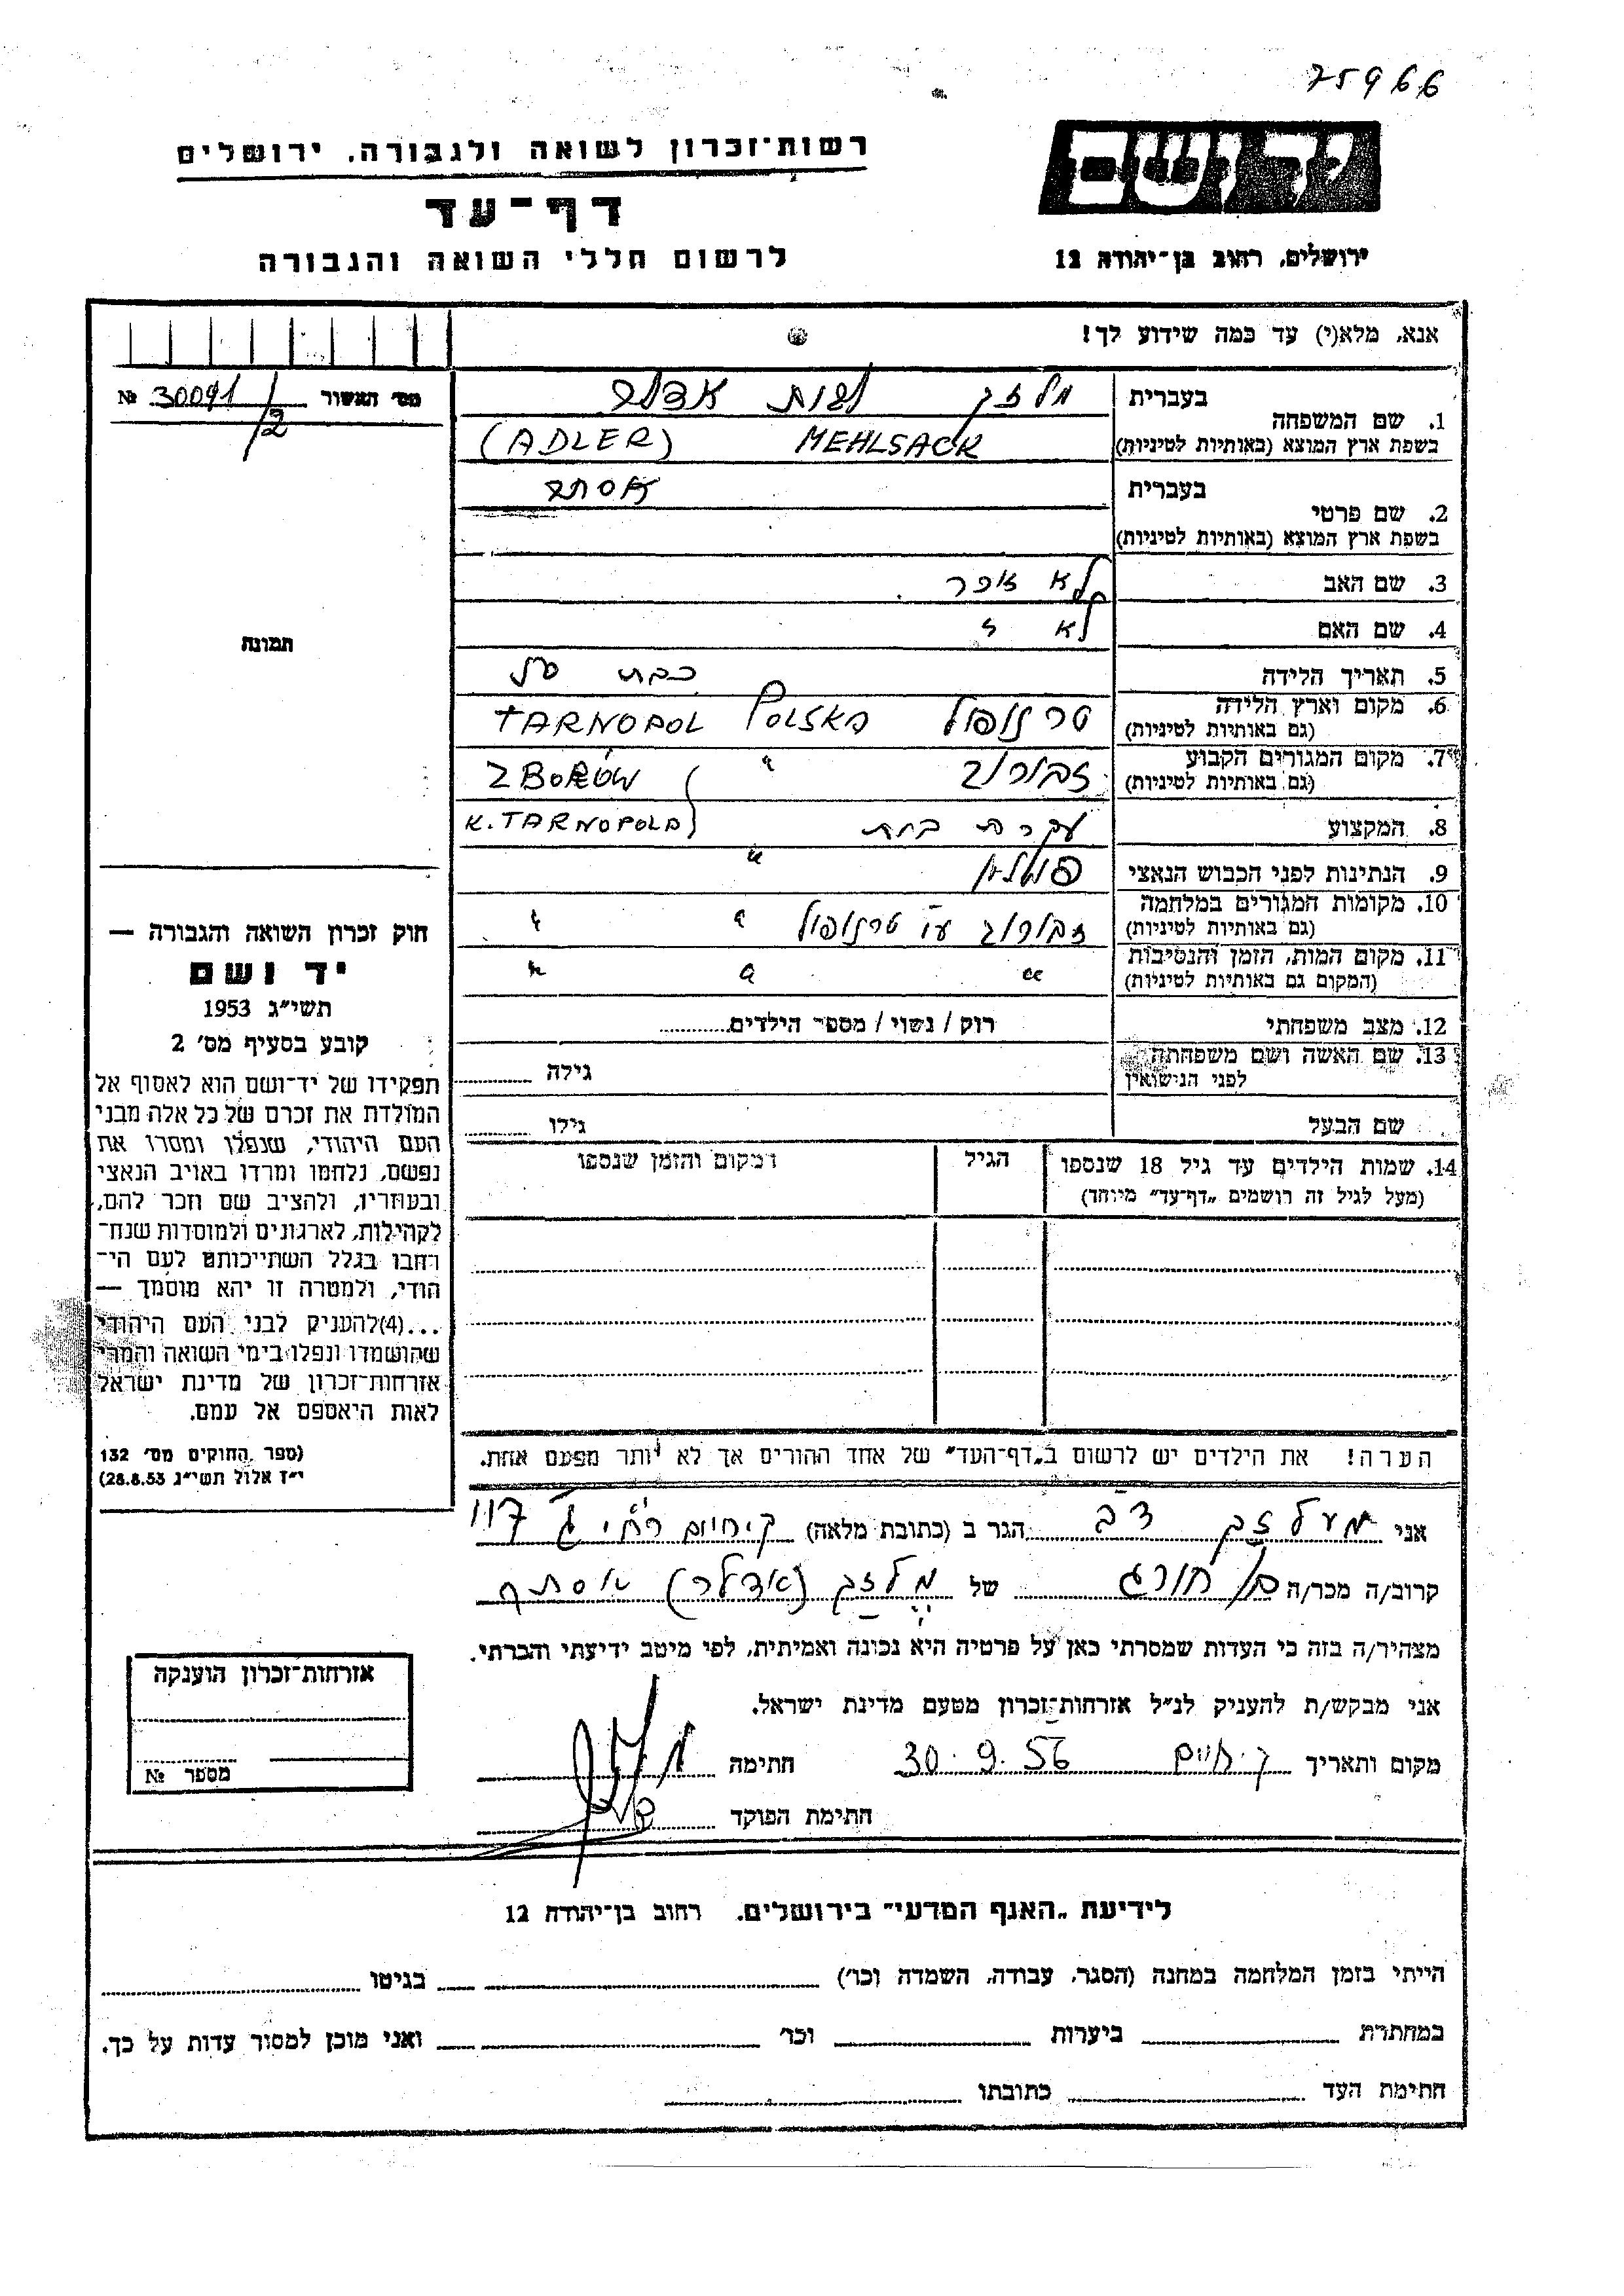 75966
יד ושם
ירושלים, רחוב בן־יהודה 12
רשות־זכרון לשואה ולגבורה, ירושלים
דף־עד
לרשום חללי השואה והגבורה
אנא, מלא(י) עד כמה שידוע לך!
מס׳ האשור № 30091/2
1. שם המשפחה
בעברית מלזק לבית אדלר
בשפת ארץ המוצא (באותיות לטיניות) MEHLSACK (ADLER)
2. שם פרטי
בעברית אסתר
בשפת ארץ המוצא (באותיות לטיניות)
3. שם האב לא זוכר
4. שם האם לא ז
5. תאריך הלידה כבת
6. מקום וארץ הלידה טרנופול POLSKA TARNOPOL
(גם באותיות לטיניות)
7. מקום המגורים הקבוע זבורוב " ZBORÓW
(גם באותיות לטיניות)
K. TARNOPOLA)
8. המקצוע עקרת בית
9. הנתינות לפני הכבוש הנאצי פולין "
10. מקומות המגורים במלחמה זבורוב ע״י טרנופול " "
(גם באותיות לטיניות)
11. מקום המות, הזמן והנסיבות " " "
(המקום גם באותיות לטיניות)
12. מצב משפחתי רוק / נשוי / מספר הילדים
13. שם האשה ושם משפחתה
לפני הנישואין גילה
שם הבעל גילו
14. שמות הילדים עד גיל 18 שנספו הגיל המקום והזמן שנספו
(מעל לגיל זה רושמים „דף־עד״ מיוחד)
הערה! את הילדים יש לרשום ב„דף־העד״ של אחד ההורים אך לא יותר מפעם אחת.
תמונה
חוק זכרון השואה והגבורה —
יד ושם
תשי״ג 1953
קובע בסעיף מס׳ 2
תפקידו של יד־ושם הוא לאסוף אל
המולדת את זכרם של כל אלה מבני
העם היהודי, שנפלו ומסרו את
נפשם, נלחמו ומרדו באויב הנאצי
ובעוזריו, ולהציב שם וזכר להם,
לקהילות, לארגונים ולמוסדות שנח־
רבו בגלל השתייכותם לעם הי־
הודי, ולמטרה זו יהא מוסמך —
...(4)להעניק לבני העם היהודי
שהושמדו ונפלו בימי השואה והמרי
אזרחות־זכרון של מדינת ישראל
לאות היאספם אל עמם.
(ספר החוקים מס׳ 132
י״ז אלול תשי״ג 28.8.53)
אני מעלזק דב הגר ב (כתובת מלאה) ק. חיים 117
קרוב/ה מכר/ה בן חורג של מלזק (אדלר) אסתר
מצהיר/ה בזה כי העדות שמסרתי כאן על פרטיה היא נכונה ואמיתית, לפי מיטב ידיעתי והכרתי.
אני מבקש/ת להעניק לנ״ל אזרחות־זכרון מטעם מדינת ישראל.
מקום ותאריך ק. חיים 30.9.56 חתימה
חתימת הפוקד
אזרחות־זכרון הוענקה
מספר №
לידיעת „האגף המדעי״ בירושלים. רחוב בן־יהודה 12
הייתי בזמן המלחמה במחנה (הסגר, עבודה, השמדה וכו׳) בגיטו
במחתרת ביערות וכו׳ ואני מוכן למסור עדות על כך.
חתימת העד כתובתו